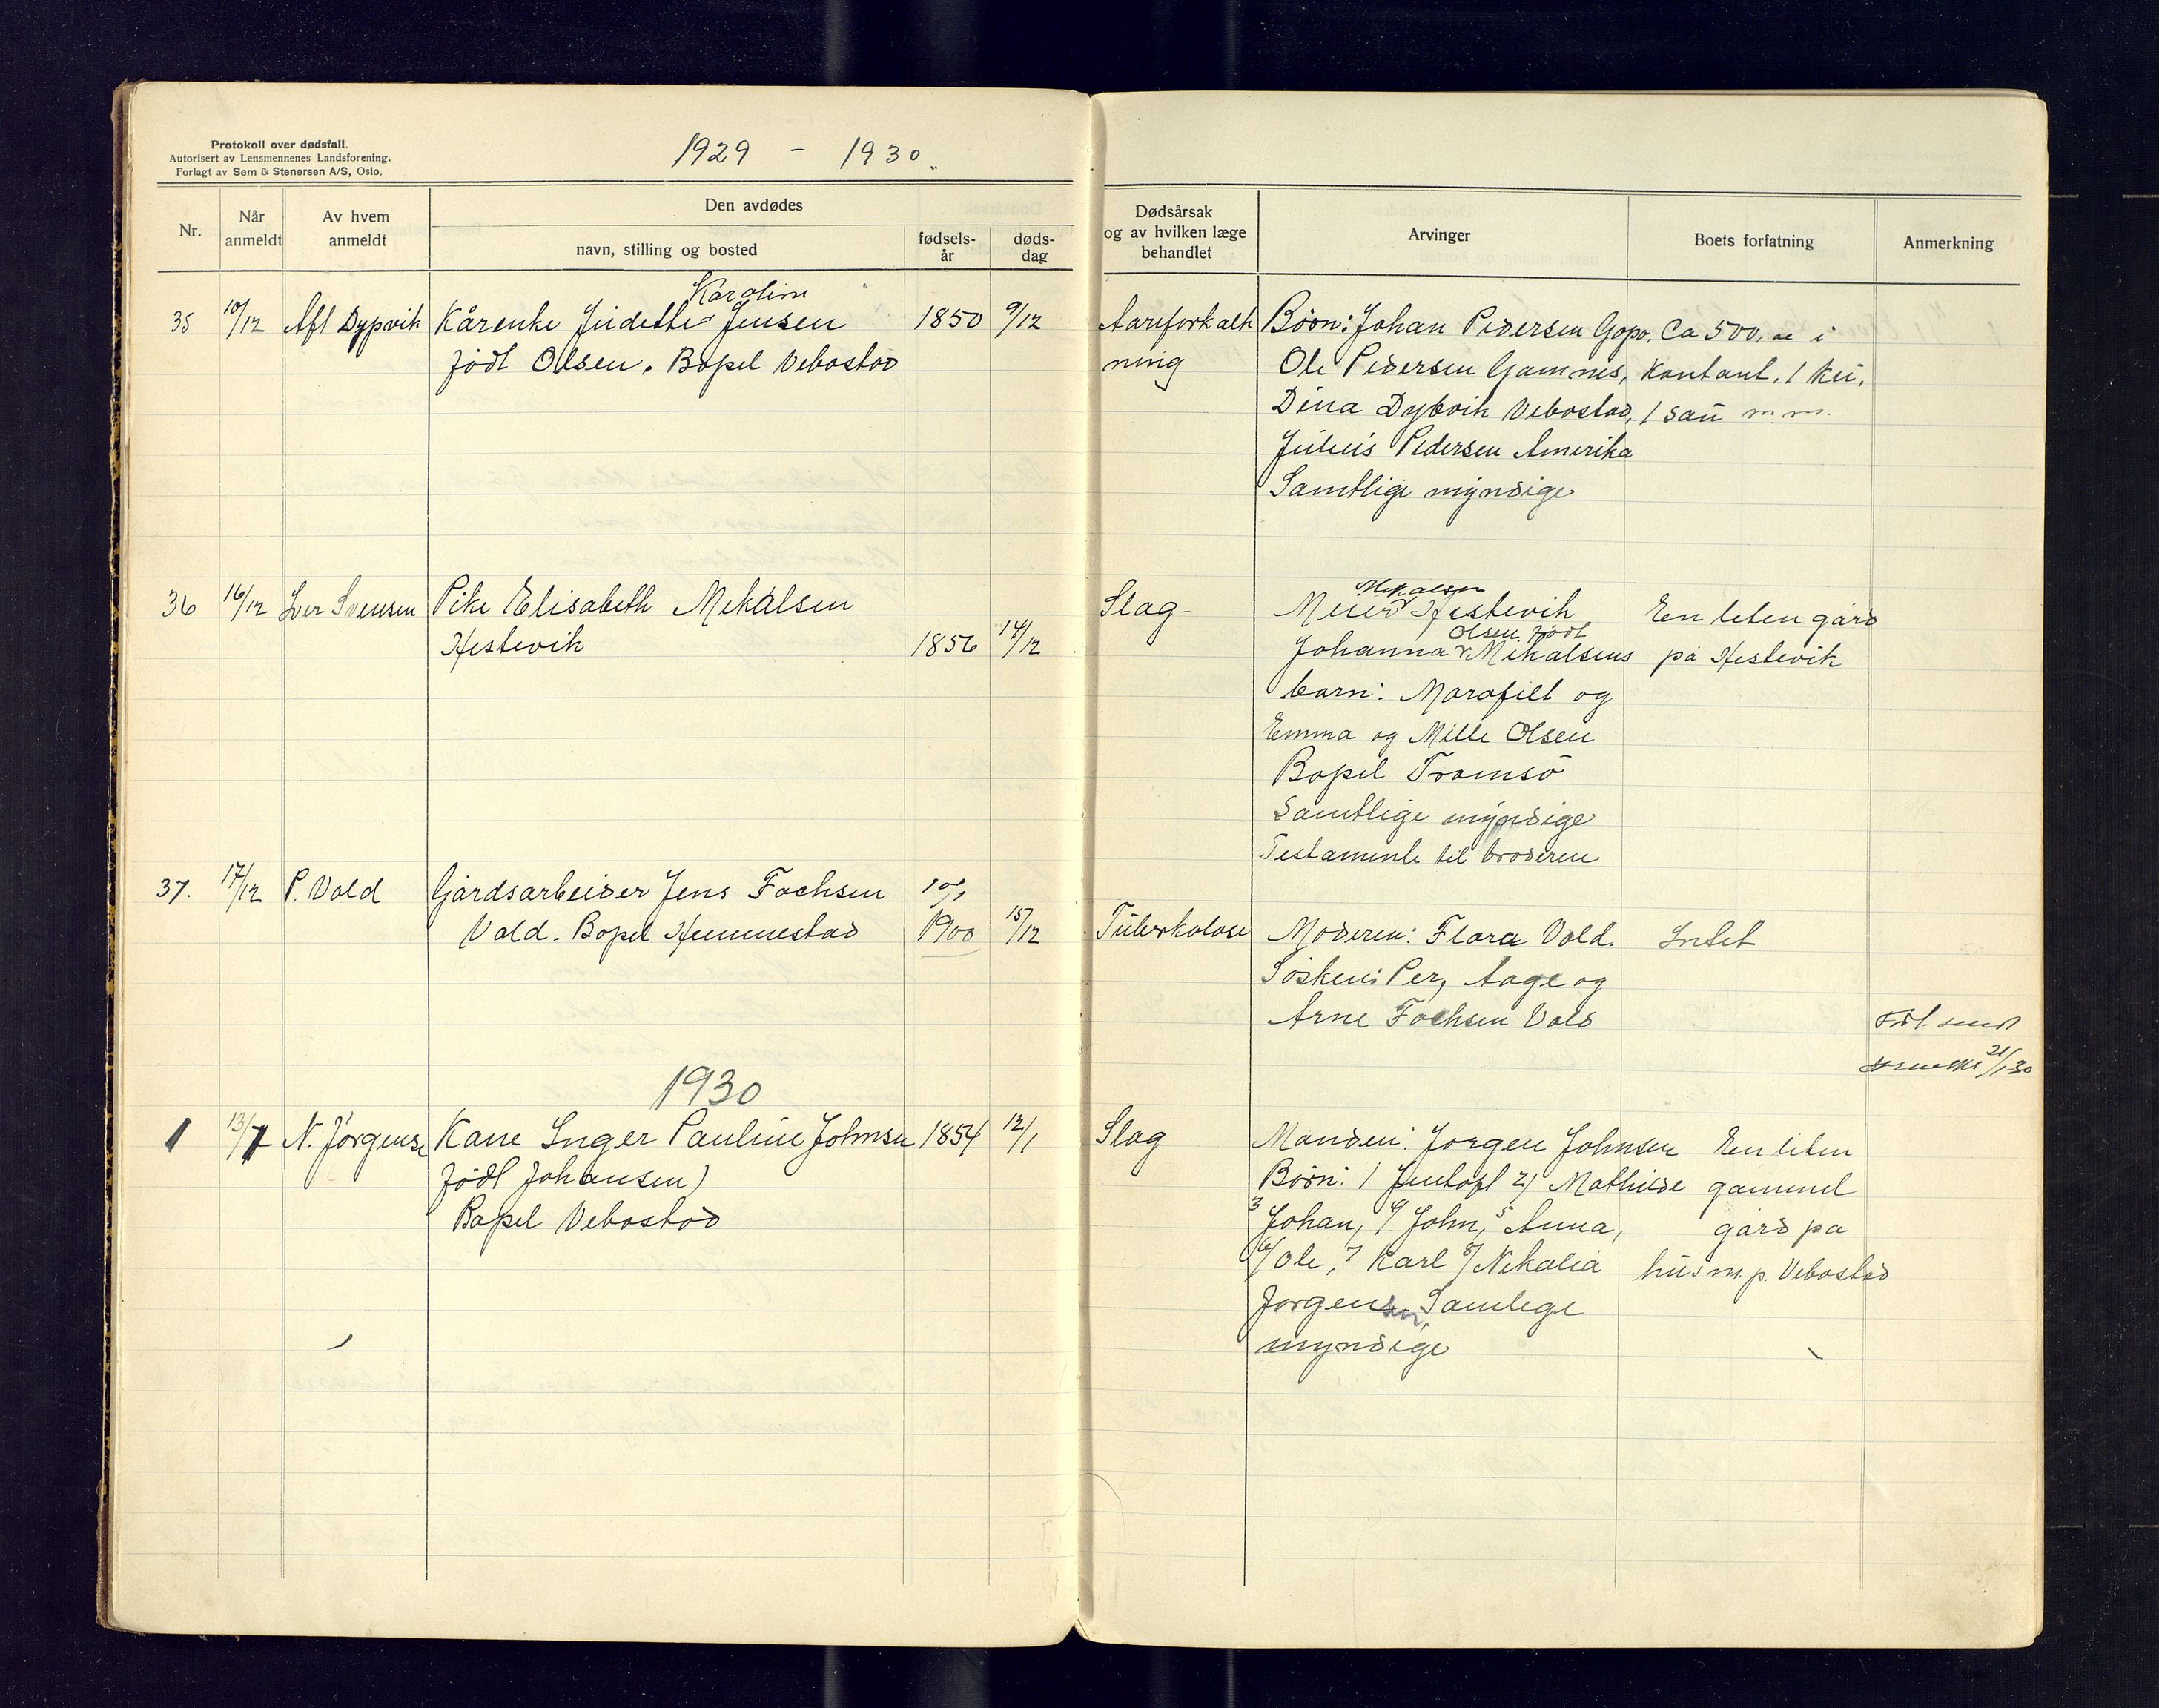 Protokoll over dødsfall.
Autorisert av Lensmennenes Landsforening.
Forlagt av Sem & Stenersen A/S, Oslo.
1929 - 1930.
Nr.
Når anmeldt
Av hvem anmeldt
Den avdødes
navn, stilling og bosted
fødsels-år
døds-dag
Dødsårsak og av hvilken læge behandlet
Arvinger
Boets forfatning
Anmerkning
Karoline
35 10/12 Afl Dypvik Kårenke Judette Jensen 1850 9/12
født Olsen. Bopel Vebostad
Aareforkalk
ning
Börn: Johan Pedersen Gopo,
Ole Pedersen Gamnes,
Dina Dybvik Vebostad,
Julius Pedersen Amerika
Samtlige myndige
Ca 500, i
Kontant. 1 ku,
1 sau m.m.
36 16/12 Iver Svensen Pike Elisabeth Mekalsen
Hestevik 1856 14/12
Slag
Mekalsen
Meier Hestevik
Olsen født
Johanna Mekalsens
barn: Marafilt og
Emma og Mille Olsen
Bopel Tromsö
Samtlige myndige
Testamente til broderen
En liten gård
på Hestevik
37. 17/12 P. Vold Gårdsarbeider Jens Fochsen 10/1
Vold. Bopel Hemmestad 1900 15/12
Tuberkolose
Moderen: Flora Vold.
Søsken: Per, Aage og
Arne Fochsen Vold
Intet
21/1 30
1930
1 13/1 N. Jørgense Kane Inger Pauline Johnsen 1854 12/1
født Johansen)
Bopel Vebostad
Slag
Manden: Jorgen Johnsen
Börn: 1 Jentoft 2) Mathilde
3 Johan, 4 John, 5 Anna,
6/ Ole, 7 Karl 8/ Nekolia
Jorgensen, Samlege
myndige
En liten
gammel
gård på
husm.p. Vebostad